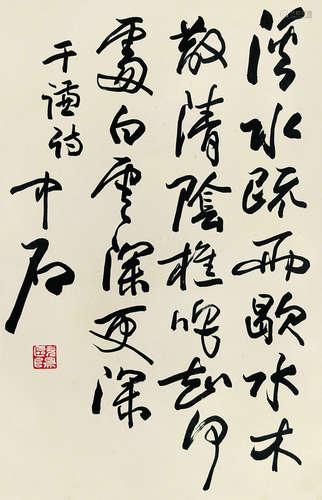 溪水疏雨歇水木
散清陰樵唱知何
處白雲深更深
于謙詩
中石